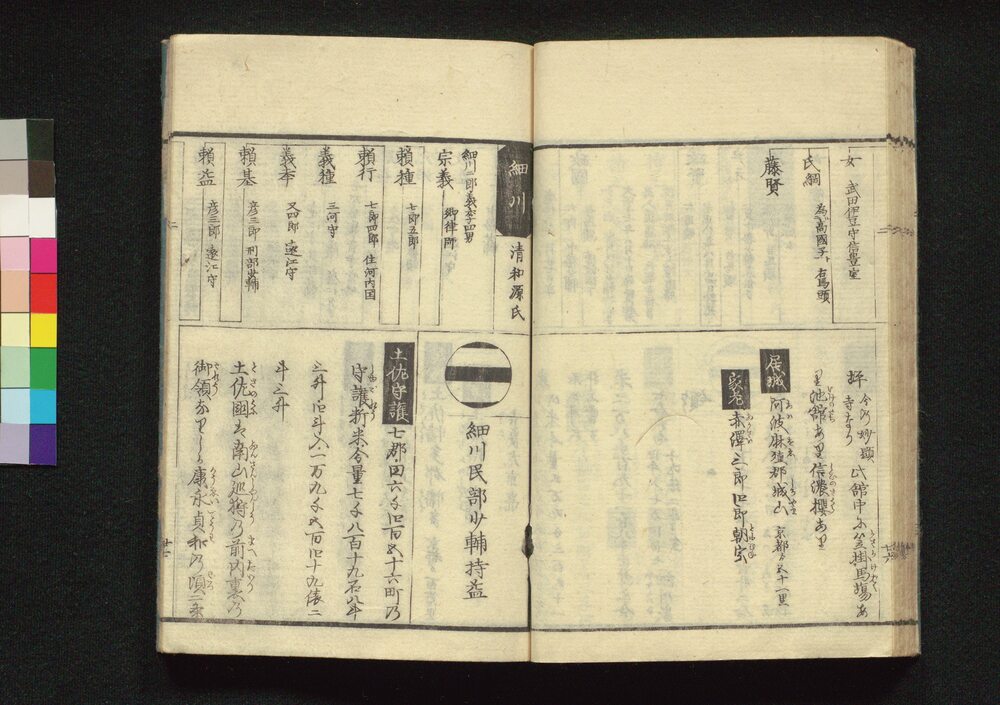 女 武田伊豆守信豊室
氏綱 為高國子、右馬頭
藤賢
坪
寺なり 此舘中に笠掛馬場あ
里池舘あり信濃櫻あり
居城 阿波麻殖郡城山 京都ゟ五十一里
家老 赤澤三郎四郎朝宗
細川 清和源氏
細川二郎義季四男
宗義 卿律師
頼種 七郎五郎
頼行 七郎四郎 住河内国
義種 三河守
義季 又四郎 遠江守
頼基 彦三郎 刑部少輔
頼益 彦三郎 遠江守
細川民部少輔持益
土佐守護 七郡・田六千四百五十六町乃
守護斫米今量七千八百十九石八斗
三升四斗六一万九千五百四十九俵二
斗三升
土佐國は南山巡狩乃前内裏乃
御領なりしを康永貞和乃頃二条